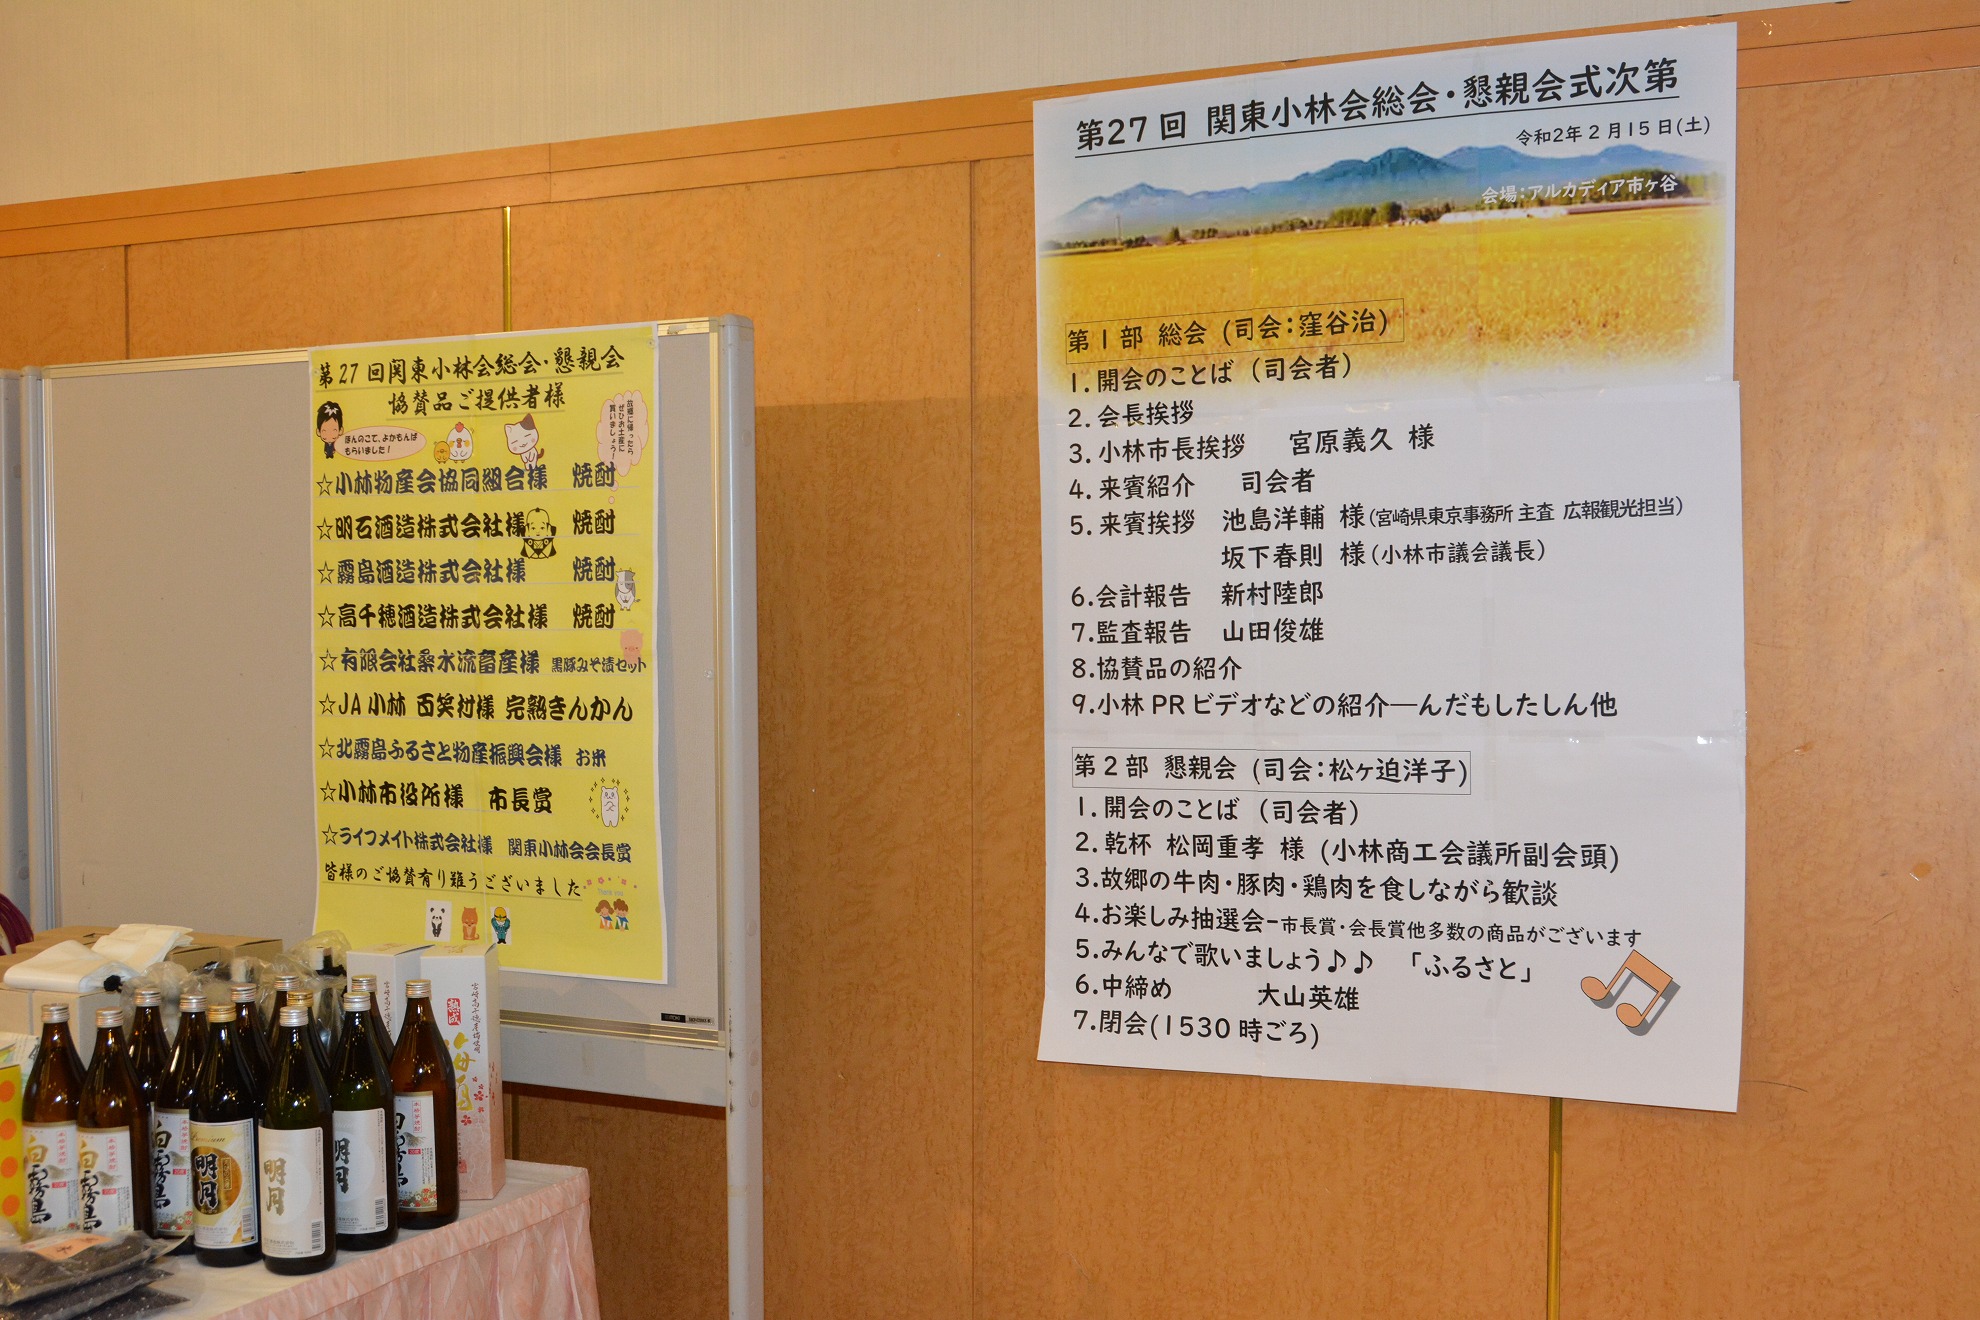 第27回関東小林会総会・懇親会
協賛品ご提供者様
ほんのこて、よかもんば
もらいました!
故郷に帰ったら
ぜひお土産に
買いましょう!
☆小林物産会協同組合様 焼酎
☆明石酒造株式会社様 焼酎
☆霧島酒造株式会社様 焼酎
☆高千穂酒造株式会社様 焼酎
☆有限会社桑水流畜産様 黒豚みそ漬セット
☆JA小林 百笑村様 完熟きんかん
☆北霧島ふるさと物産振興会様 お米
☆小林市役所様 市長賞
☆ライフメイト株式会社様 関東小林会会長賞
皆様のご協賛有り難うございました
Thank You
第27回 関東小林会総会・懇親会式次第
令和2年2月15日(土)
会場:アルカディア市ヶ谷
第1部 総会 (司会:窪谷治)
1.開会のことば (司会者)
2.会長挨拶
3.小林市長挨拶 宮原義久 様
4.来賓紹介 司会者
5.来賓挨拶 池島洋輔 様(宮崎県東京事務所 主査 広報観光担当)
坂下春則 様(小林市議会議長)
6.会計報告 新村陸郎
7.監査報告 山田俊雄
8.協賛品の紹介
9.小林PRビデオなどの紹介―んだもしたしん他
第2部 懇親会 (司会:松ヶ迫洋子)
1.開会のことば (司会者)
2.乾杯 松岡重孝 様 (小林商工会議所副会頭)
3.故郷の牛肉・豚肉・鶏肉を食しながら歓談
4.お楽しみ抽選会-市長賞・会長賞他多数の商品がございます
5.みんなで歌いましょう♪♪ 「ふるさと」
6.中締め 大山英雄
7.閉会(1530時ごろ)
熟成
梅酒
白霧島
白霧島
白霧島
明月
明月
明月
白霧島